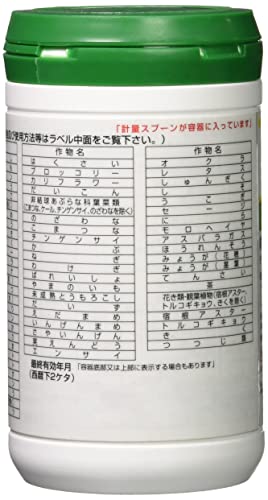 「計量スプーンが容器に入っています」
及び使用方法等はラベル中面をご覧下さい。)
作物名
はくさい
ブロッコリー
カリフラワー
だいこん
非結球あぶらな科葉菜類
(こまつな、ケール、チンゲンサイ、のざわなを除く)
のざわな
こまつな
チンゲンサイ
かぶ
ねぎ
わけぎ
ばれいしょ
やまのいも
未成熟とうもろこし
だいず
えだまめ
いんげんまめ
さやいんげん
実えんどう
ンサイ
作物名
オクラ
レタス
しゅんぎく
モロヘイヤ
アスパラガス
ほうれんそう
みょうが(花穂)
みょうが(茎葉)
てんさい
茶
花き類・観葉植物(宿根アスター、
トルコギキョウ、きくを除く)
宿根アスター
トルコギキョウ
きく
つつじ類
最終有効年月「容器底部又は上部に表示する場合もあります」
(西暦下2ケタ)